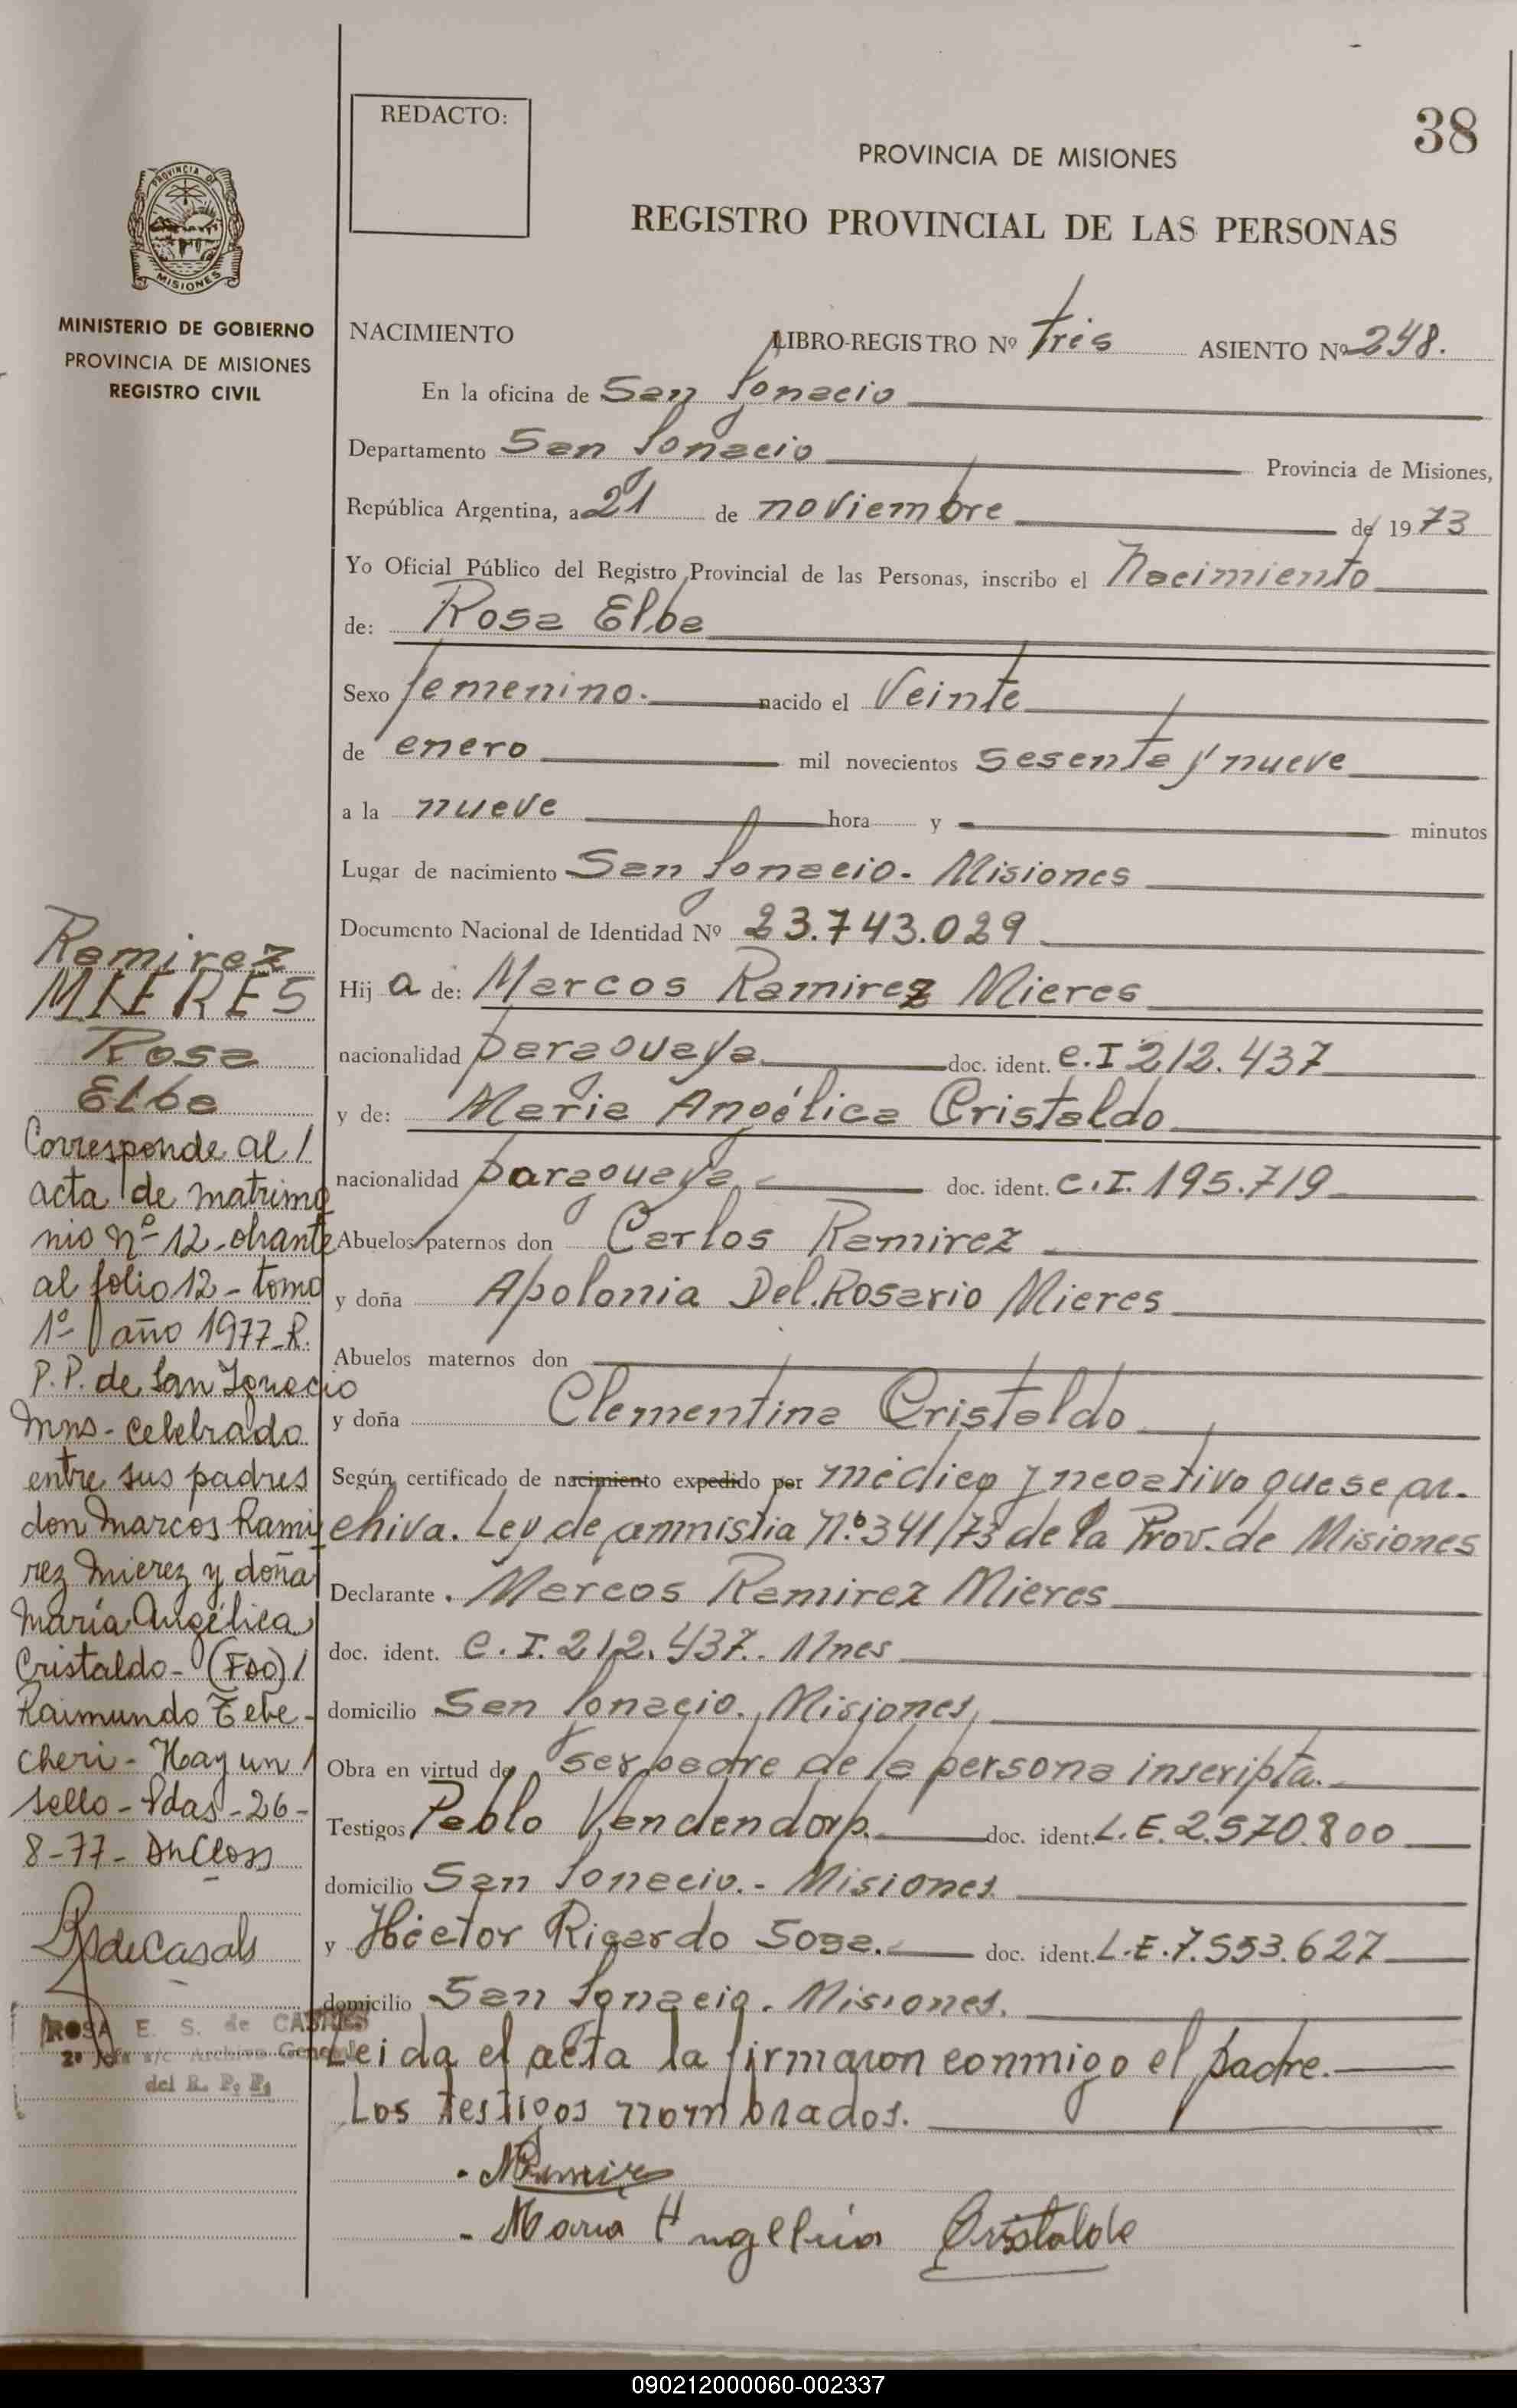 REDACTO:
38
PROVINCIA DE MISIONES
REGISTRO PROVINCIAL DE LAS PERSONAS
PROVINCIA DE
MISIONES
MINISTERIO DE GOBIERNO
PROVINCIA DE MISIONES
REGISTRO CIVIL
NACIMIENTO LIBRO-REGISTRO Nº Tres ASIENTO Nº 248.
En la oficina de San Ignacio
Departamento San Ignacio Provincia de Misiones,
República Argentina, a 21 de noviembre de 1973
Yo Oficial Público del Registro Provincial de las Personas, inscribo el Nacimiento
de: Rosa Elba
Sexo femenino. nacido el Veinte
de enero mil novecientos sesenta y nueve
a la nueve hora y minutos
Lugar de nacimiento San Ignacio - Misiones
Documento Nacional de Identidad Nº 23.743.029
Hij a de: Marcos Ramirez Mieres
nacionalidad paraguaya doc. ident. C.I 212.437
y de: Maria Angélica Cristaldo
nacionalidad paraguaya doc. ident. C.I. 195.719
Abuelos paternos don Carlos Ramirez
y doña Apolonia Del Rosario Mieres
Abuelos maternos don
y doña Clementina Cristaldo
Según certificado de nacimiento expedido por médico y negativo que se ar-
chiva. Ley de amnistia N.º 341/73 de la Prov. de Misiones
Declarante . Marcos Ramirez Mieres
doc. ident. C.I. 212.437. Mnes
domicilio San Ignacio. Misiones,
Obra en virtud de ser padre de la persona inscripta.
Testigos Pablo Vendendorp. doc. ident. L.E. 2.570.800
domicilio San Ignacio. - Misiones.
y Héctor Ricardo Sosa. doc. ident. L.E. 7.553.627
domicilio San Ignacio. Misiones.
Leida el acta la firmaron conmigo el padre.
Los testigos nombrados.
Maria Angelica Cristaldo
Ramirez
MIERES
Rosa
Elba
Corresponde al /
acta de matrimo
nio nº 12 - obrante
al folio 12 - tomo
1º año 1977 - R.
P.P. de San Ignacio
Mns - celebrado
entre sus padres
don Marcos Rami
rez Mierez y doña
María Angélica
Cristaldo - (Fdo) /
Raimundo Tebe-
cheri - Hay un /
sello - Pdas - 26 -
8-77 -
ROSA E. S. de CASALS
2º Jefe a/c Archivo General
del R. P. P.
090212000060-002337